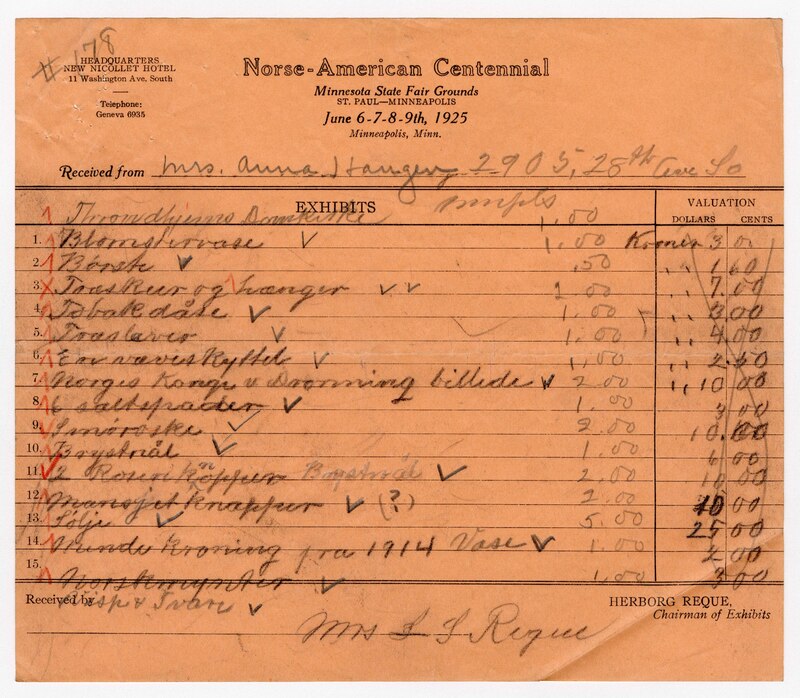 # 178
HEADQUARTERS
NEW NICOLLET HOTEL
11 Washington Ave. South
Telephone:
Geneva 6935
Norse-American Centennial
Minnesota State Fair Grounds
ST. PAUL—MINNEAPOLIS
June 6-7-8-9th, 1925
Minneapolis, Minn.
Received from Mrs. Anna Haugen 2905, 28th Ave So
EXHIBITS VALUATION
DOLLARS CENTS
Throndhjems Domkirke 1.00
1. Blomstervase ✓ 1.00 Kroner 3 00
2. Børste ✓ .50 " 1.60
3. Træskur og hænger ✓✓ 2.00 " 7.00
4. Tobakdåse ✓ 1.00 " 3.00
5. ✓ 1.00 " 4.00
6. En væveskyttel ✓ 1.00 " 2.50
7. Norges Konge v Dronning billede ✓ 2.00 " 10 00
8. 6 saltspader ✓ 1.00 3 00
9. Smørøske ✓ 2.00 10.00
10. Brystnål ✓ 1.00 6 00
11. 2 Brystnål ✓ 2.00 10 00
12. Mansjet knapper ✓ (?) 2.00 10 00
13. Sølje ✓ 5.00 25 00
14. Minde Kroning fra 1914 Vase ✓ 1.00 2 00
15. Norskmynter ✓ 1.00 3 00
Received by Visp & Tvare ✓
HERBORG REQUE,
Chairman of Exhibits
Mrs L S Reque